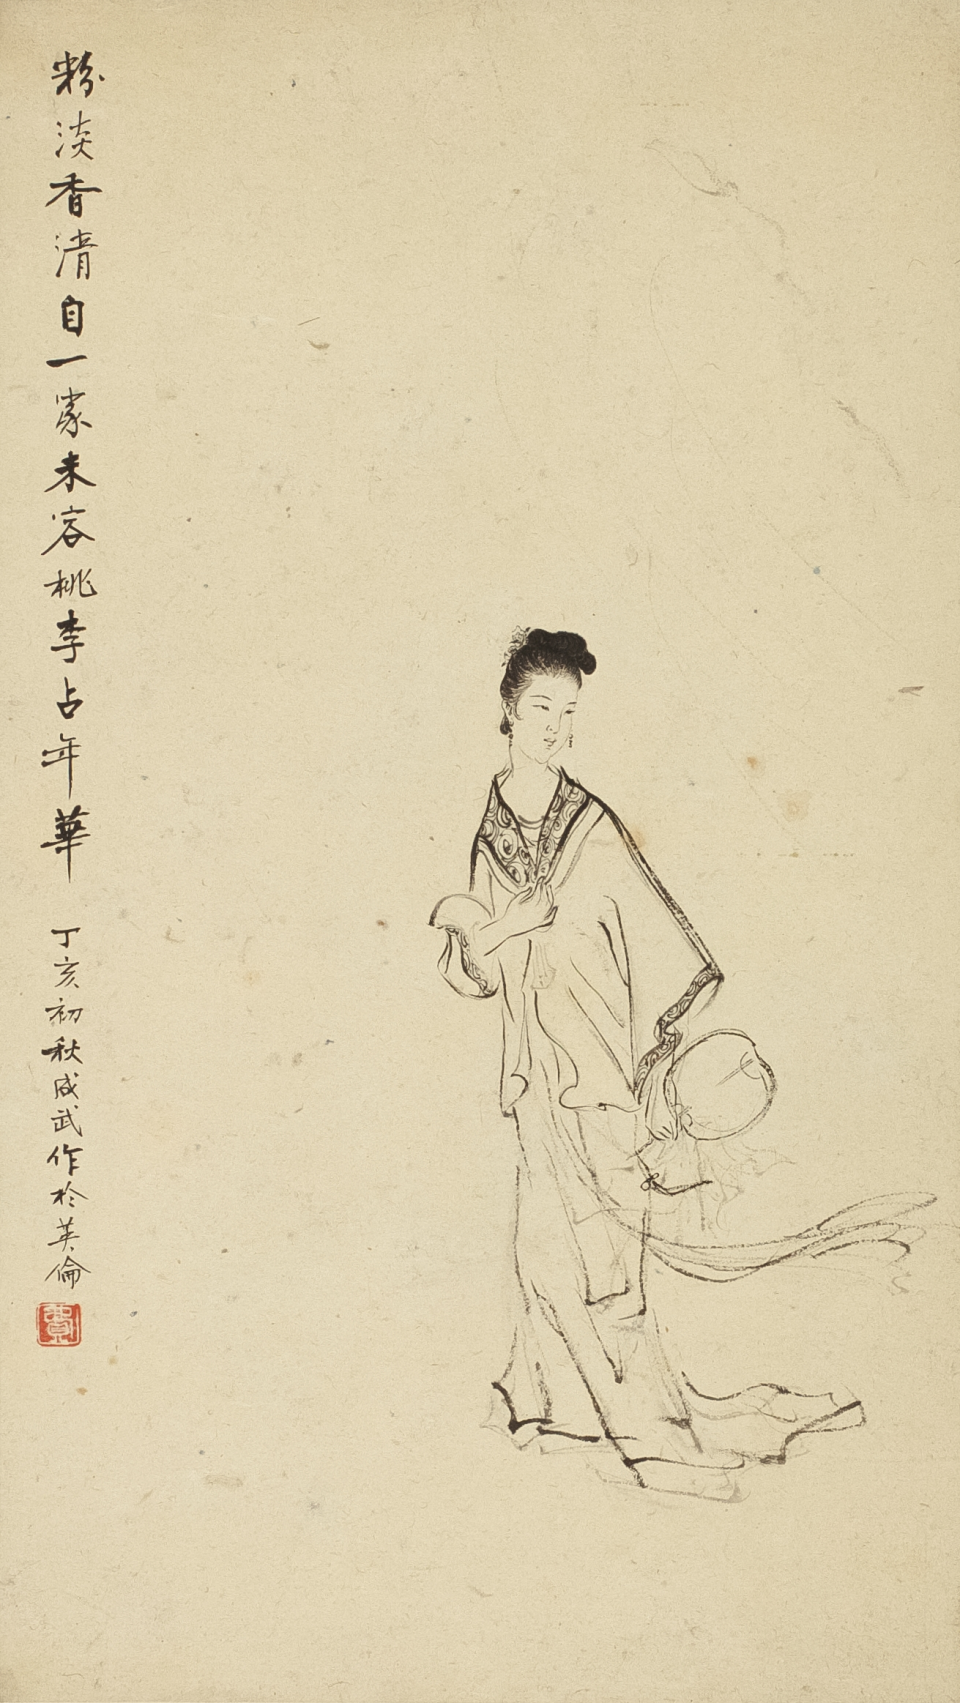 粉淡香清自一家未容桃李占年華
丁亥初秋成武作於英倫
費